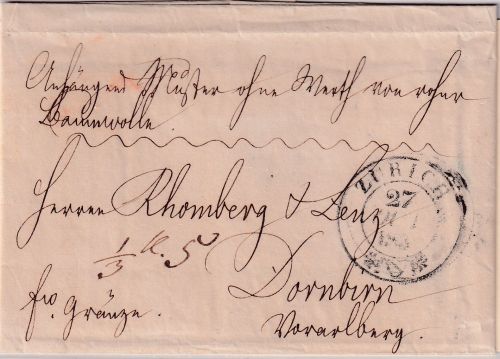 Anhängend Muster ohne Werth von roher
Baumwolle.
Herren Rhomberg & Lenz
ZÜRICH
27
1/3
Dornbirn
fco. Gränze.
Vorarlberg.